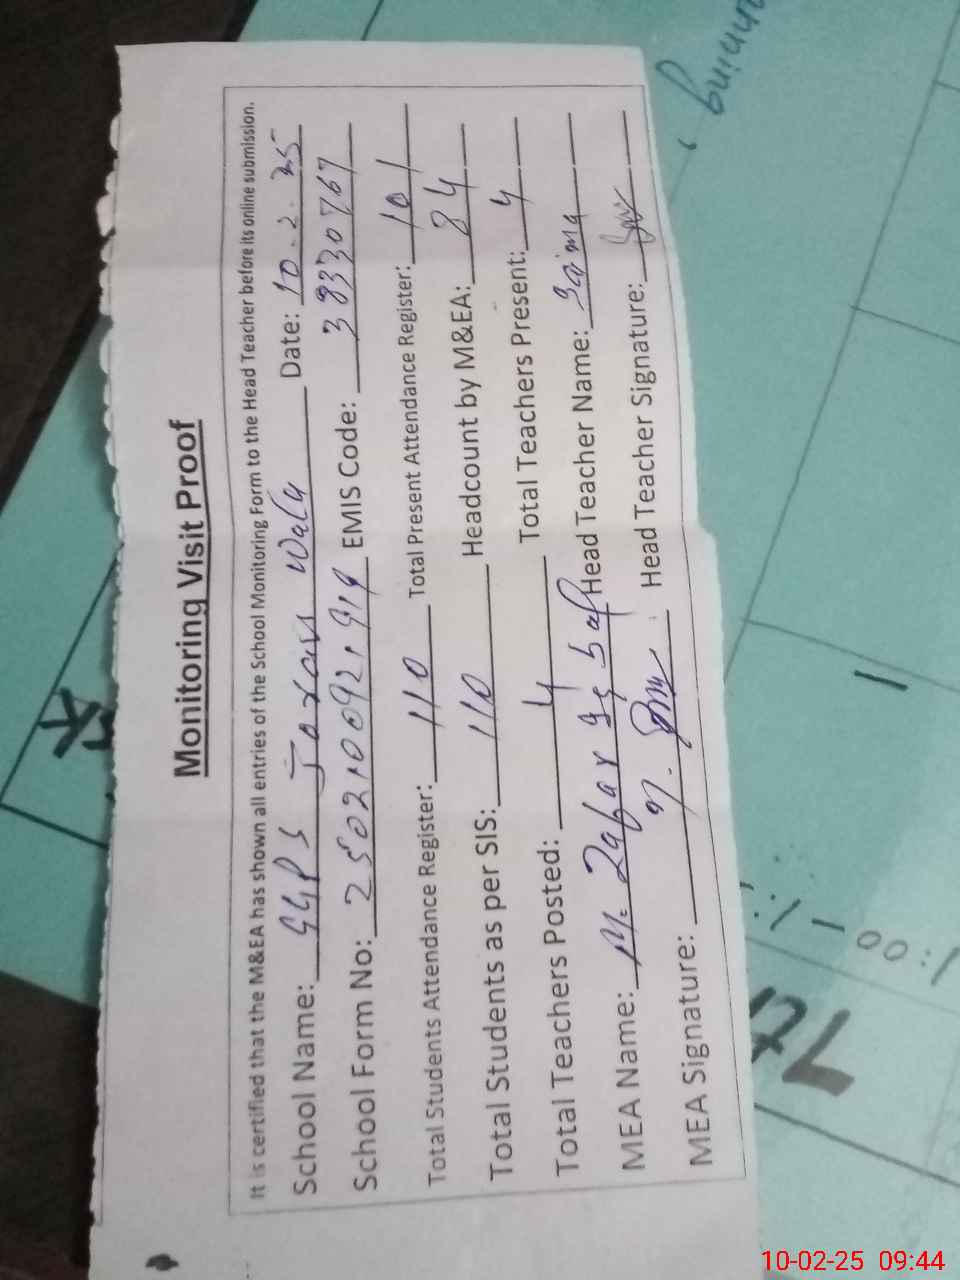 Monitoring Visit Proof
It is certified that the M&EA has shown all entries of the School Monitoring Form to the Head Teacher before its online submission.
School Name: GGPS Wala Date: 10.2.25
School Form No: EMIS Code: 38330767
Total Students Attendance Register: 110 Total Present Attendance Register: 101
Total Students as per SIS: 110 Headcount by M&EA: 84
Total Teachers Posted: 4 Total Teachers Present: 4
MEA Name: M. Zafar Head Teacher Name: Saima
MEA Signature: Head Teacher Signature:
10-02-25 09:44